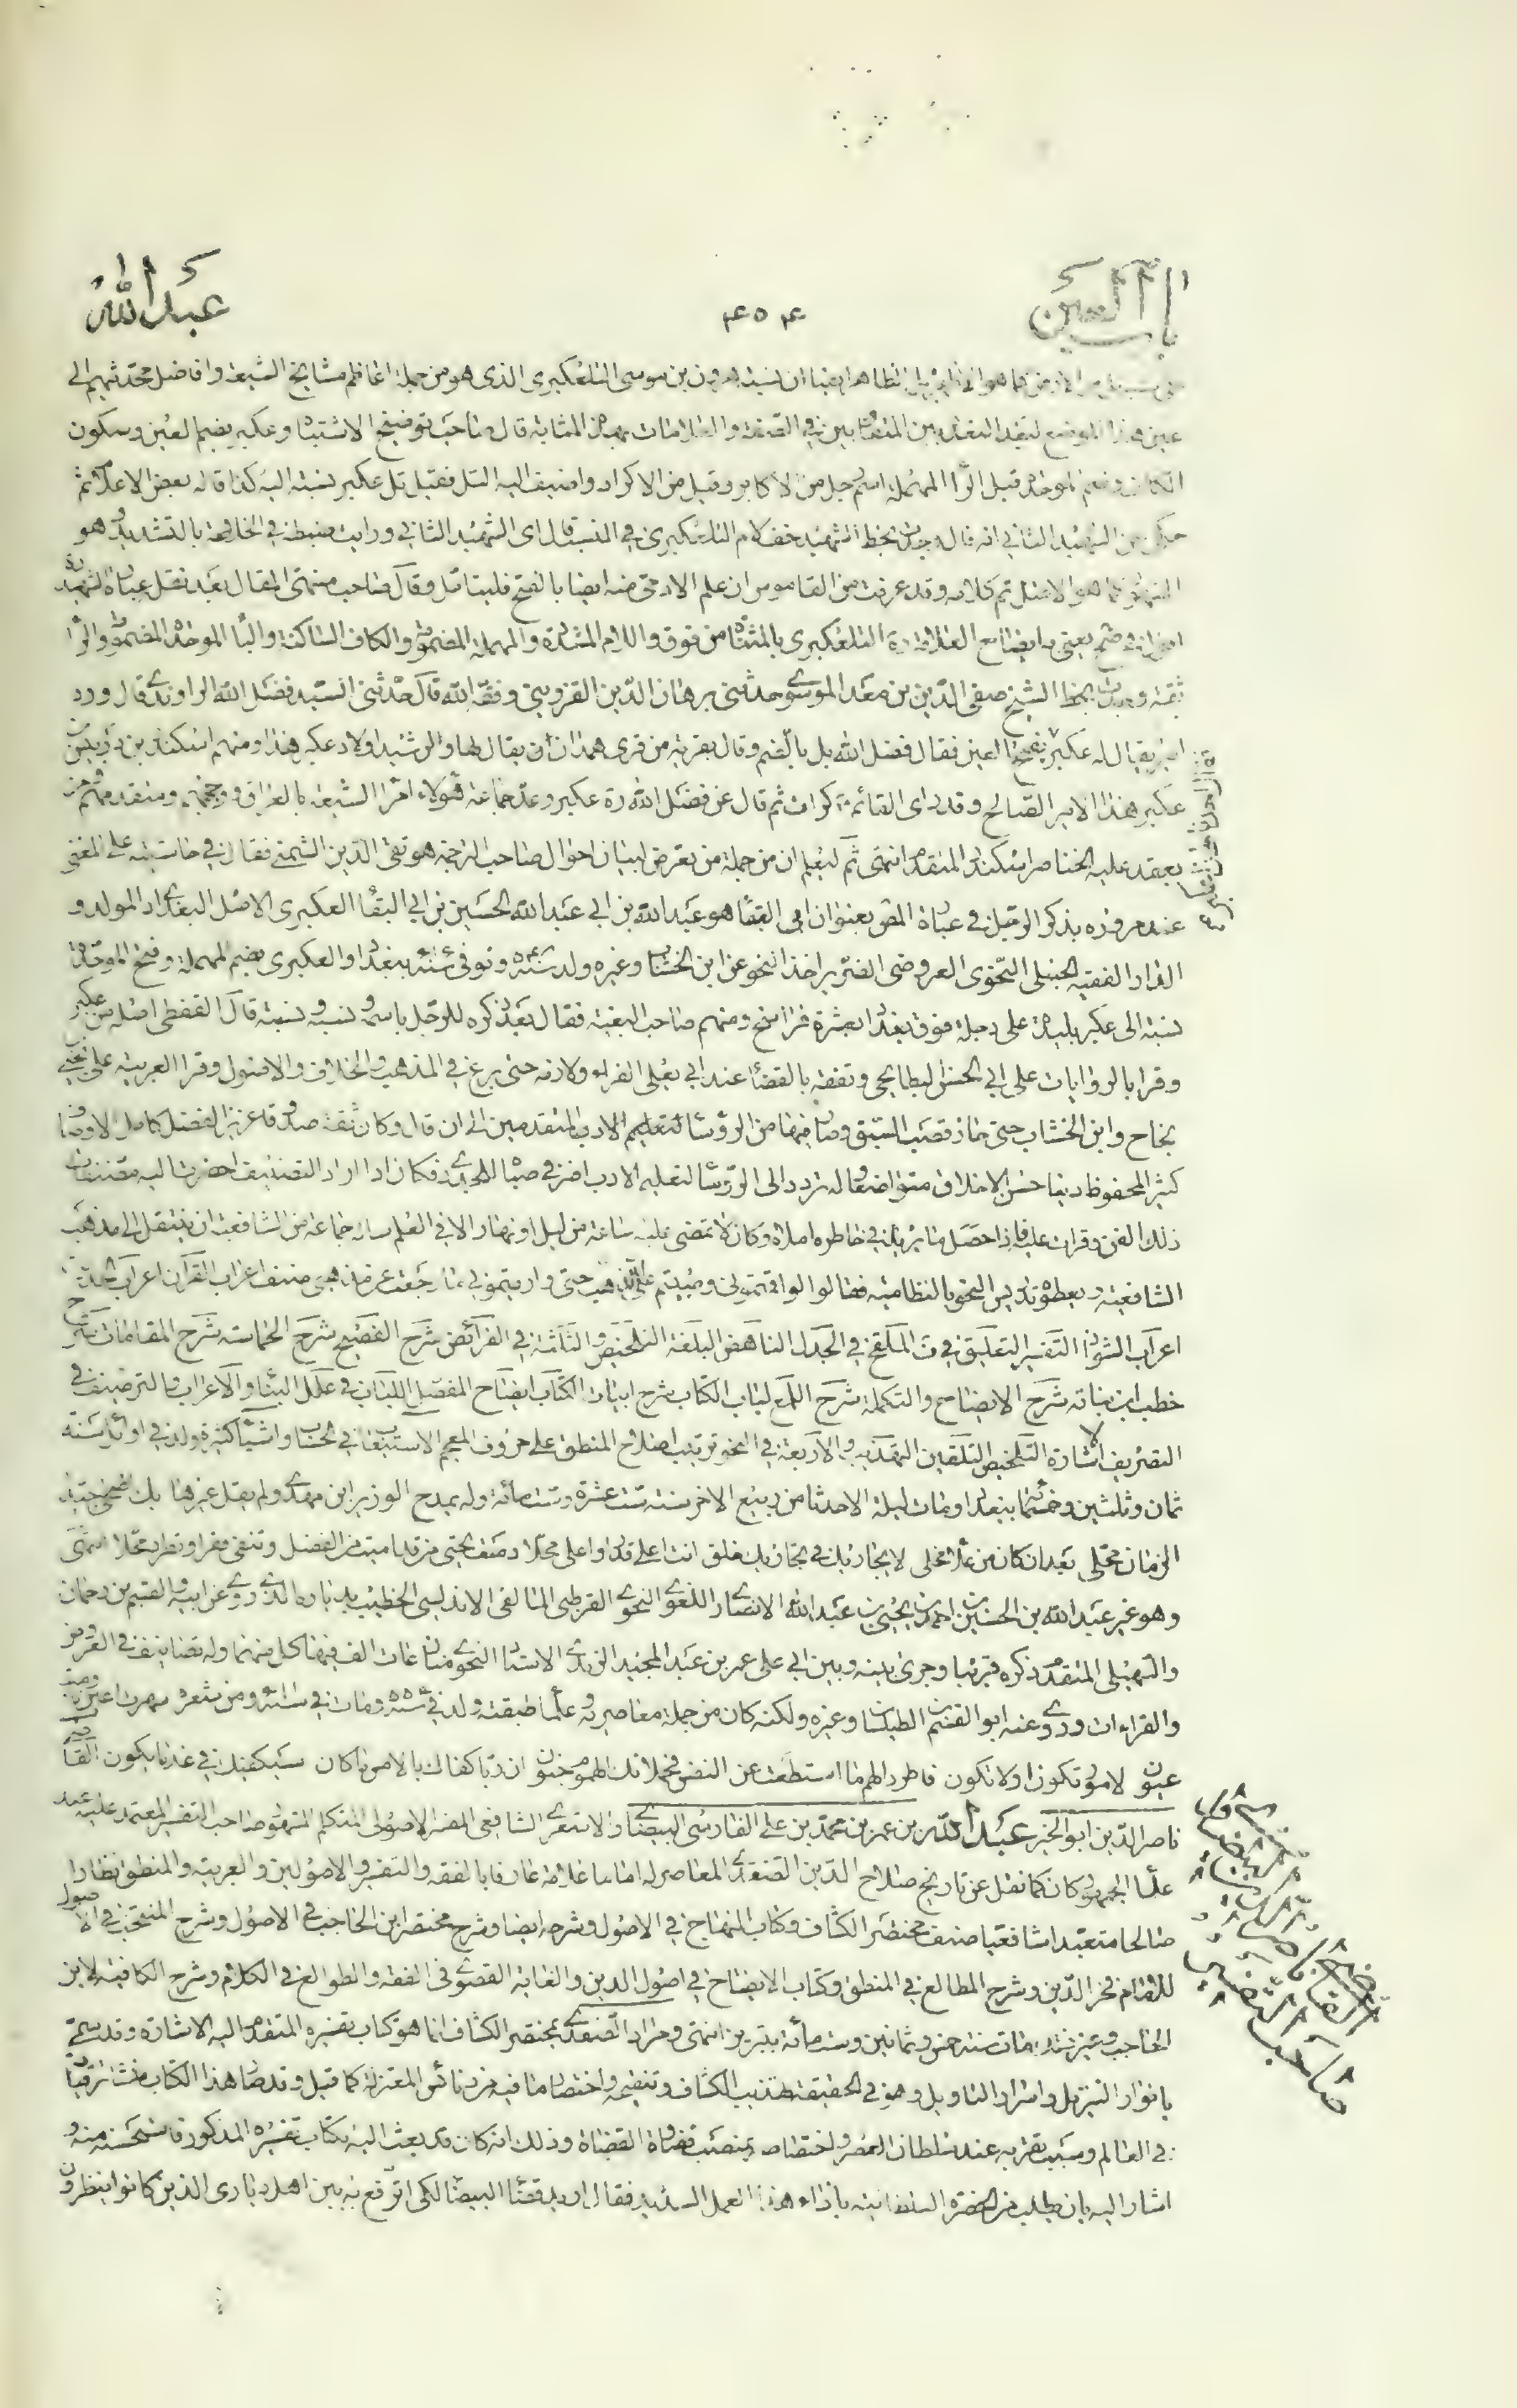 باب العين
۴۵۴
عبد الله
الذى هو من جملة اعاظم مشايخ الشيعة وافاضل محدثيهم الى
عين هذا الموضع لبعد البعد بين المتقابلين فى الصفة والعلامات بهذه المثابة قال صاحب توضيح الاشتباه وعكبر بضم العين وسكون
الكاف وضم الموحدة قبل الراء المهملة اسم رجل من الاكابر وقيل من الاكراد واضيف اليه التل فقيل تل عكبر نسبة اليه كذا قاله بعض الاعلام ثم
حكى عن الشهيد الثانى انه قال وجدت بخط الشهيد خفف لام التلعكبرى فى النسب قال اى الشهيد الثانى ورايت ضبطه فى الخلاصة بالتشديد وهو
كما هو الاصل تم كلامه وقد عرفت من القاموس ان علم الادمى منه ايضا بالفتح فليتامل وقال صاحب منتهى المقال بعد نقل عبارة الشهيد
التلعكبرى بالمثناة من فوق واللام المشددة والمهملة المضمومة والكاف الساكنة والباء الموحدة المضمومة والراء
ثقة وجدت بخط الشيخ صفى الدين بن معد الموسوى حدثنى برهان الدين القزوينى وفقه الله قال حدثنى السيد فضل الله الراوندى قال ورد
امير يقال له عكبر بفتح العين فقال فضل الله بل بالضم وقال بقرية من قرى همدان يقال لها والرشيد اولاد عكبر هذا ومنهم اسكندر بن دربيس بن
عكبر هذا الامير الصالح وقد راى القائم ع كرات ثم قال عن فضل الله ره عكبر وعد جماعة هؤلاء امراء الشيعة بالعراق ووجههم ومتقدمهم ومن
يعقد عليه الخناصر اسكندر المتقدم انتهى ثم ليعلم ان من جملة من تعرض لبيان احوال صاحب الترجمة هو تقى الدين الشمنى فقال فى حاشيته على المغنى
عند مروره بذكر الرجل فى عبارة المص بعنوان ابى البقاء هو عبد الله بن ابى عبد الله الحسين بن ابى البقاء العكبرى الاصل البغدادى المولد و
الدار الفقيه الحنبلى النحوى العروضى الضرير اخذ النحو عن ابن الخشاب وغيره ولد سنة وتوفى سنة ببغداد والعكبرى بضم المهملة وفتح الموحدة
نسبة الى عكبر بليدة على دجلة فوق بغداد بعشرة فراسخ ومنهم صاحب البغية فقال بعد ذكره للرجل باسمه ونسبه ونسبته قال القفطى اصله من عكبر
وقرا بالروايات على ابى الحسن البطايحى وتفقه بالقضاء عند ابى يعلى الفراء ولازمه حتى برع فى المذهب والخلاف والاصول وقرا العربية على يحيى بن
نجاح وابن الخشاب حتى حاز قصب السبق وصار فيها من الرؤساء لتعليم الادب المتقدمين الى ان قال وكان ثقة صدوقا غزير الفضل كامل الاوصاف
كثير المحفوظ دينا حسن الاخلاق متواضعا وله تردد الى الرؤساء لتعليم الادب اضر فى صباه بالجدرى فكان اذا اراد التصنيف احضرت اليه مصنفات
ذلك الفن وقرات عليه فاذا حصل ما يريد فى خاطره املاه وكان لا تمضى عليه ساعة من ليل او نهار الا فى العلم ساله جماعة من الشافعية ان ينتقل الى مذهب
الشافعية ويعطوه تدريس النحو بالنظامية فقال لو اقمتمونى وصببتم على الذهب حتى واريتمونى ما رجعت عن مذهبى صنف اعراب القرآن اعراب الحديث
اعراب الشواذ التفسير التعليق فى الملقح فى الجدل الناهض البلغة التلخيص والثلاثة فى الفرائض شرح الفصيح شرح الحماسة شرح المقامات شرح
خطب ابن نباته شرح الايضاح والتكملة شرح اللمع لباب الكتاب شرح ابيات الكتاب ايضاح المفصل اللباب فى علل البناء والاعراب والترصيف فى
التصريف الاشارة التلخيص التلقين التهذيب والاربعة فى النحو ترتيب اصلاح المنطق على حروف المعجم الاستيعاب فى الحساب واشياء كثيرة ولد فى اوائل سنة
ثمان وثلثين وخمسمائة ببغداد ومات ليلة الاحد ثامن ربيع الاخر سنة ست عشرة وستمائة وله يمدح الوزير ابن مهدى ولم يقل غيرها بك اضحى جيد
الزمان محلى بعد ان كان من علاه مخلى لا يجاريك فى نجاريك خلق انت اعلى قدرا واعلى محلا دمت تحيى ما قد اميت من الفضل وتنفى فقرا وتطرد محلا انتهى
وهو غير عبد الله بن الحسن بن احمد بن يحيى بن عبد الله الانصارى اللغوى النحوى القرطبى المالقى الاندلسى الخطيب بدياره الذى روى عن ابيه والقسم بن دحمان
والسهيلى المتقدم ذكره قريبا وجرى بينه وبين ابى على عمر بن عبد المجيد الرندى الاستاد النحوى منازعات الف فيها كل منهما وله تصانيف فى العروض
والقراءات وروى عنه ابو القسم الطيلسان وغيره ولكنه كان من جملة معاصريه وعلماء طبقته ولد فى سنة ومات فى سنة ومن شعره سهرت اعين ونامت
عيون لامور تكون او لا تكون فاطرد الهم ما استطعت عن النفس فحملانك الهموم جنون ان ربا كفاك بالامس ما كان سيكفيك فى غد ما يكون
ناصر الدين ابو الخير عبد الله بن عمر بن محمد بن على الفارسى البيضاوى الاشعرى الشافعى المفسر الاصولى المتكلم المشهور صاحب التفسير المعتمد عليه عند
علماء الجمهور كان كما نقل عن تاريخ صلاح الدين الصفدى المعاصر له اماما علامة عارفا بالفقه والتفسير والاصولين والعربية والمنطق نظارا
صالحا متعبدا شافعيا صنف مختصر الكشاف وكتاب المنهاج فى الاصول وشرحه ايضا وشرح مختصر ابن الحاجب فى الاصول وشرح المنتخب فى الاصول
للامام فخر الدين وشرح المطالع فى المنطق وكتاب الايضاح فى اصول الدين والغاية القصوى فى الفقه والطوالع فى الكلام وشرح الكافية لابن
الحاجب وغير ذلك مات سنة خمس وثمانين وستمائة بتبريز انتهى ومراد الصفدى بمختصر الكشاف انما هو كتاب تفسيره المتقدم اليه الاشارة وقد سمى
بانوار التنزيل واسرار التاويل وهو فى الحقيقة تهذيب الكشاف وتنقيحه واختصار ما فيه من دسائس المعتزلة كما قيل وقد صار هذا الكتاب منشا ترقيه
فى العالم وسبب تقربه عند سلطان العصر واختصاصه بمنصب قضاة القضاة وذلك انه كان قد بعث اليه بكتاب تفسيره المذكور فاستحسنه منه و
اشار اليه بان يطلب من الحضرة السلطانية بازاء هذا العمل السديد فقال اريد قضاء البيضاء لكى اترفع به بين اهل ديارى الذين كانوا ينظرون